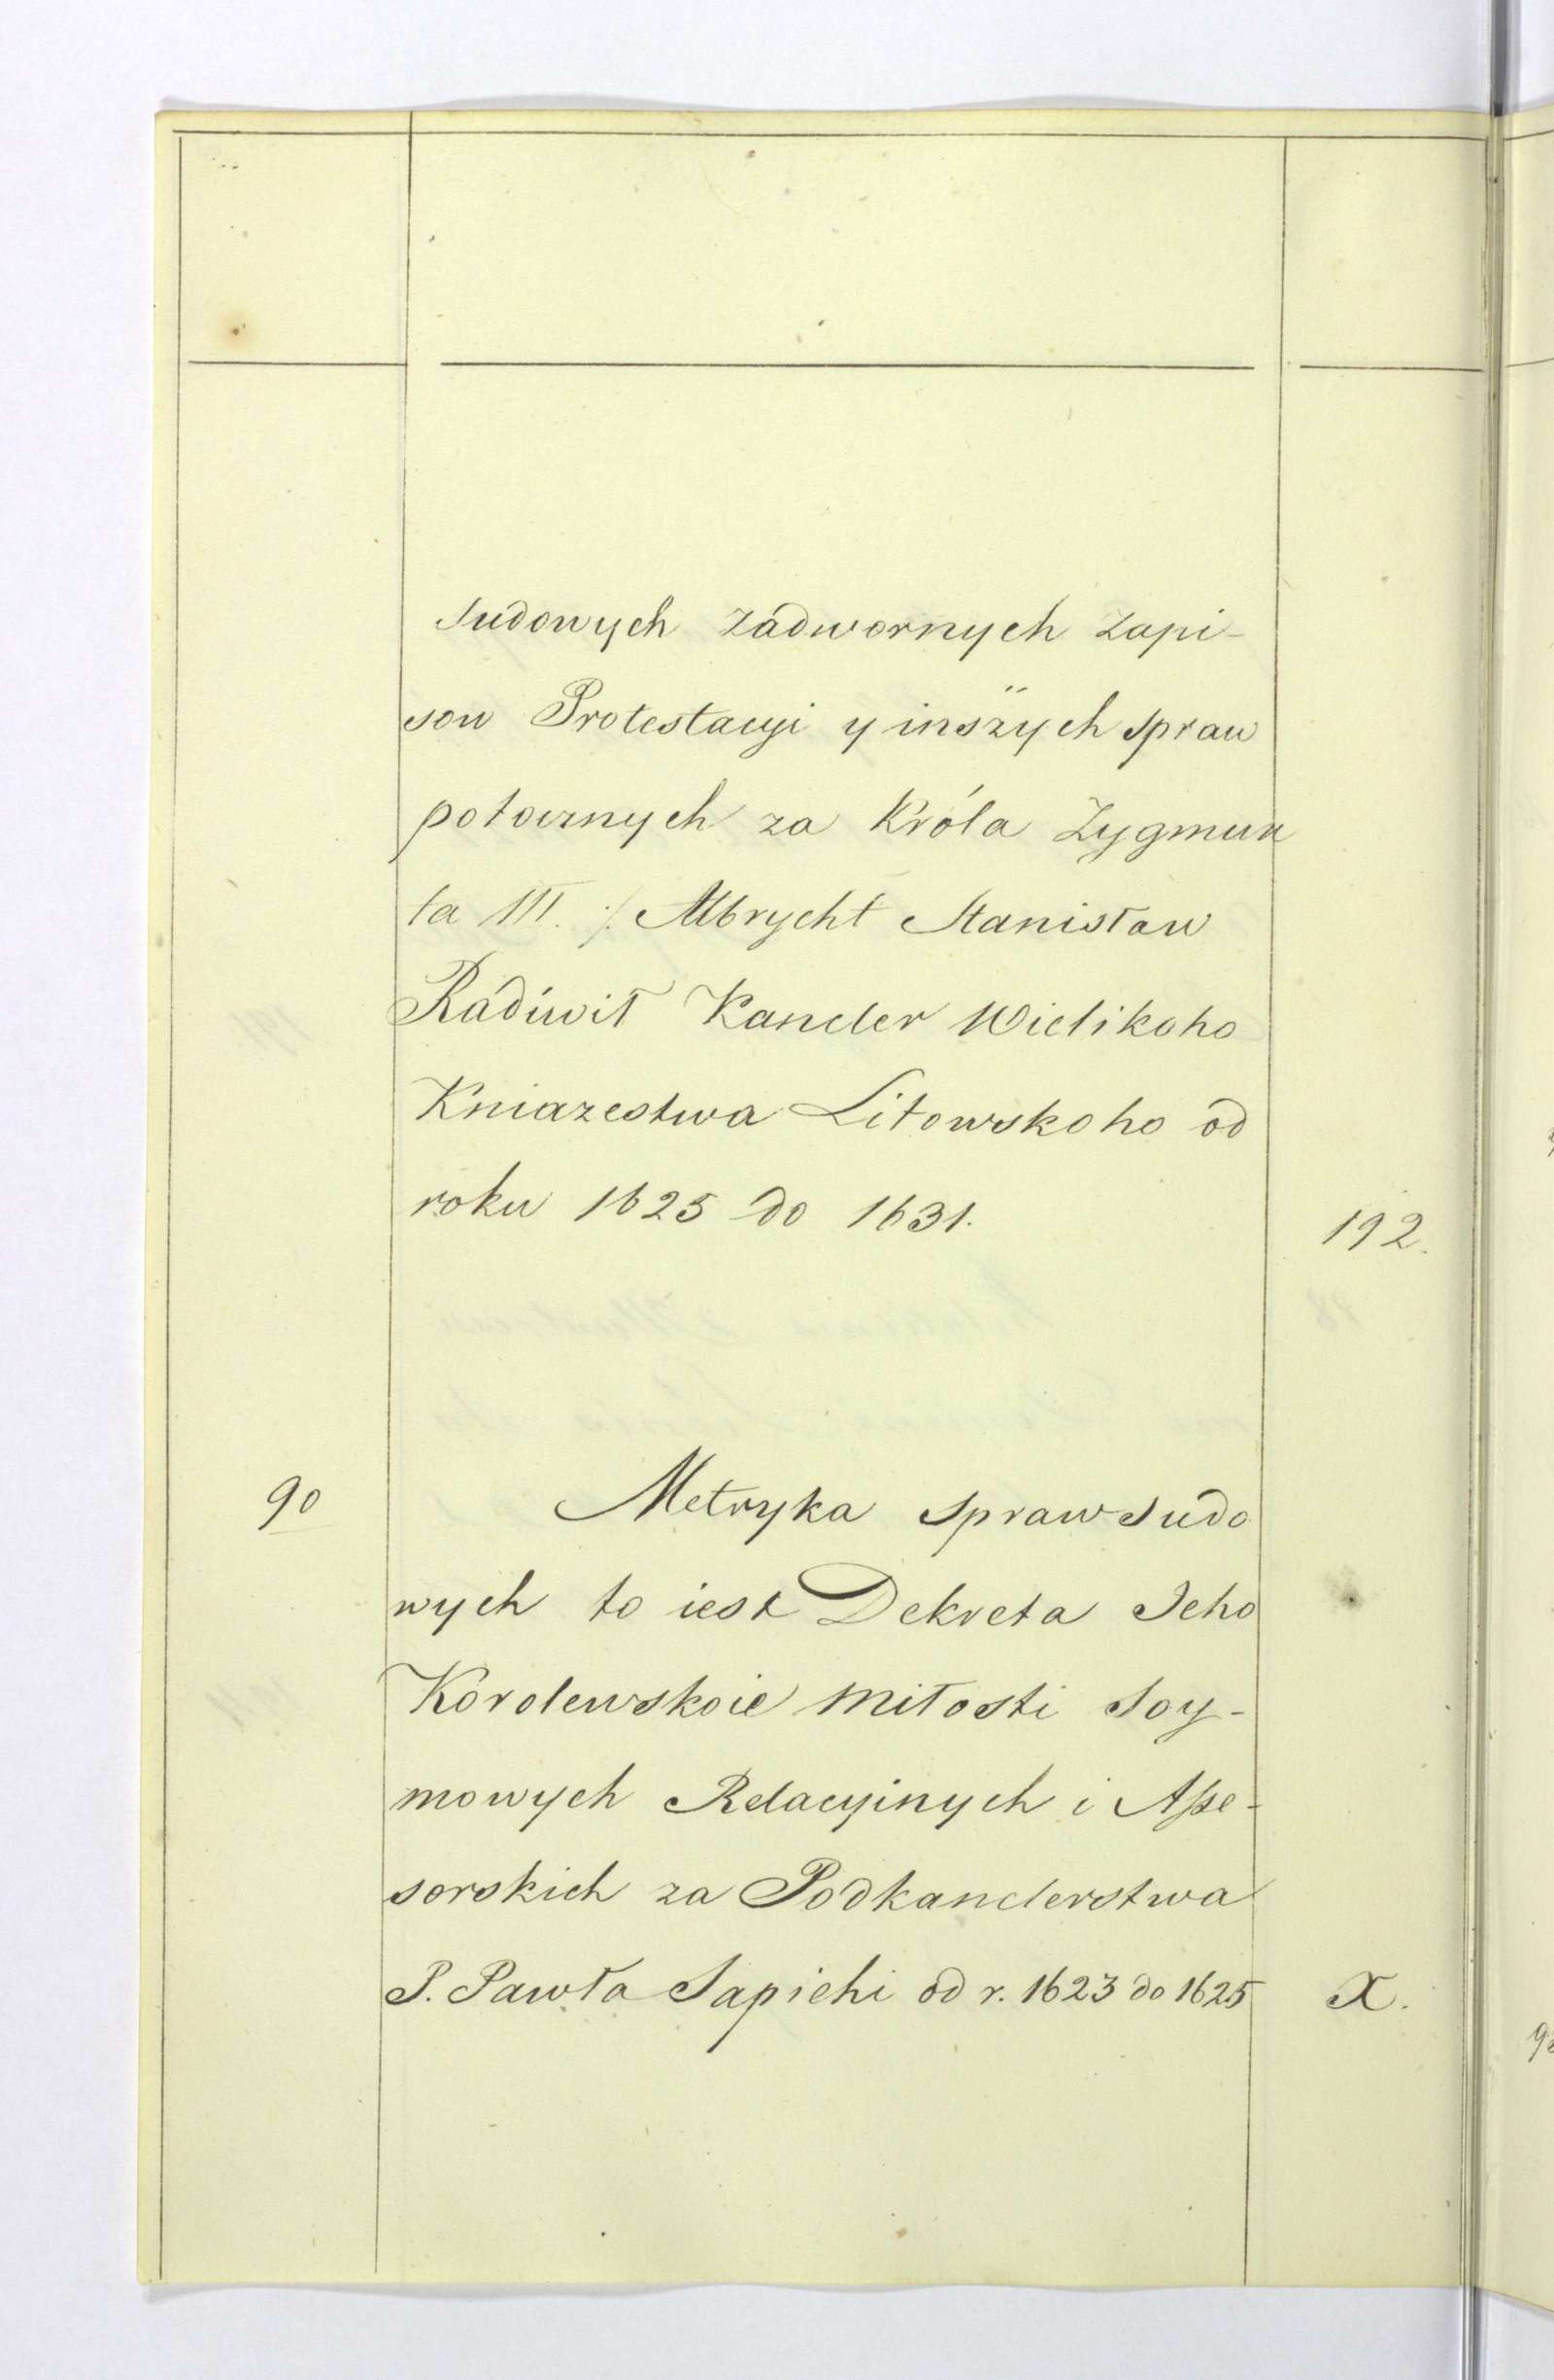 sudowych zadwornych zapi-
sow Protestacyi y inszych spraw
potocznych za Króla Zygmun
ta III. /. Albrycht Stanisław
Radiwił Kancler Wielikoho
Kniazestwa Litowskoho od
roku 1625 do 1631.
192.
90
Metryka spraw sudo
wych to iest Dekreta Jeho
Korolewskoie miłosti soy-
mowych Relacyinych i Asse-
sorskich za Podkanclerstwa
P. Pawła Sapiehi od r. 1623 do 1625
X.